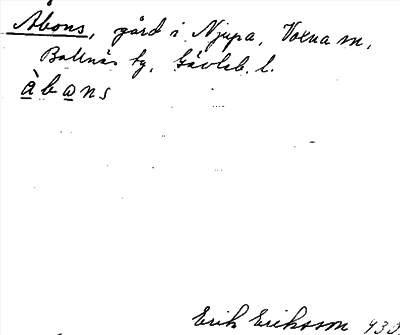 Åbons, gård i Njupa, Voxna sn,
Bollnäs tg, Gävleb. l.
àbans
Erik Eriksson 930